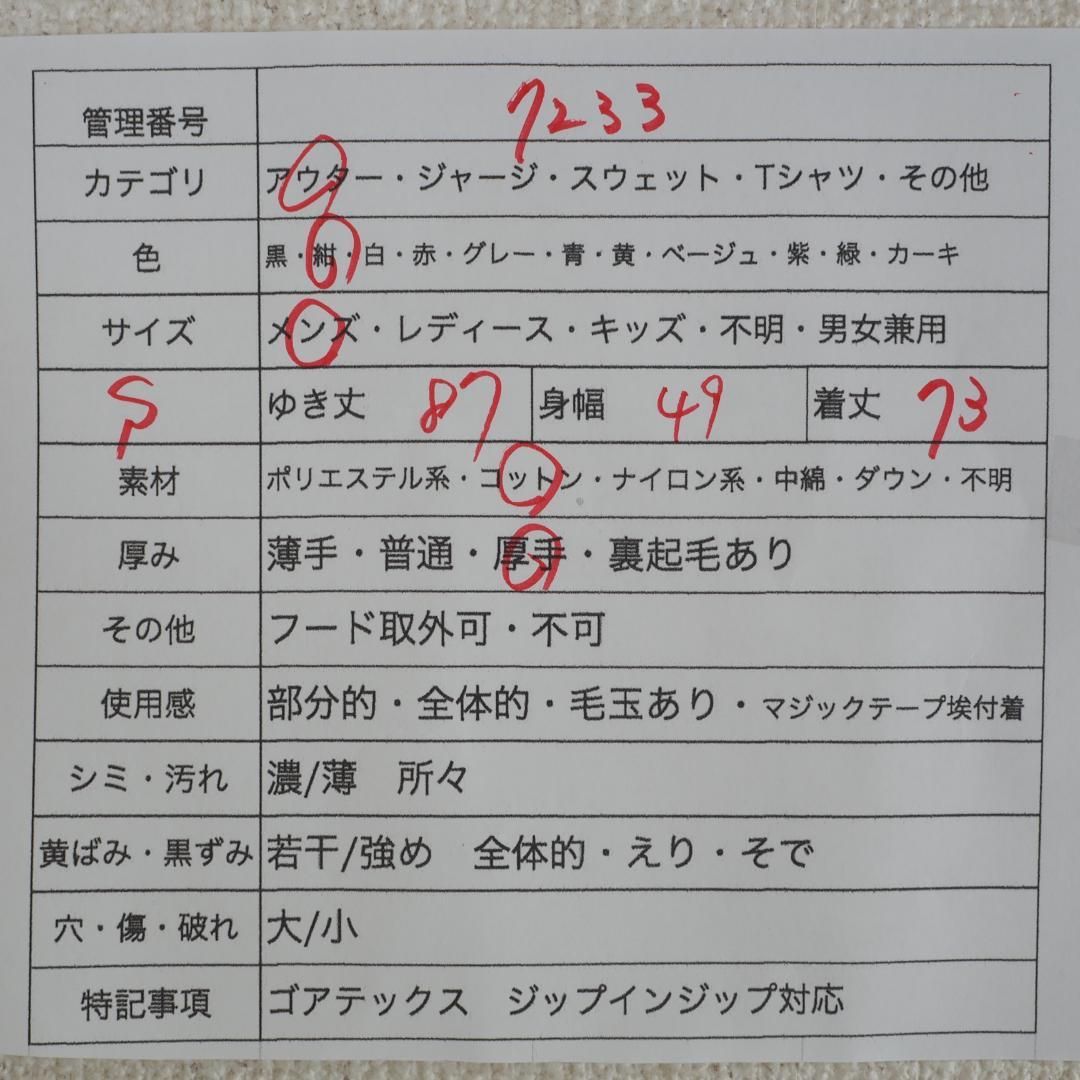 管理番号 7233
カテゴリ アウター・ジャージ・スウェット・Tシャツ・その他
色 黒・紺・白・赤・グレー・青・黄・ベージュ・紫・緑・カーキ
サイズ メンズ・レディース・キッズ・不明・男女兼用
S ゆき丈 87 身幅 49 着丈 73
素材 ポリエステル系・コットン・ナイロン系・中綿・ダウン・不明
厚み 薄手・普通・厚手・裏起毛あり
その他 フード取外可・不可
使用感 部分的・全体的・毛玉あり・マジックテープ埃付着
シミ・汚れ 濃/薄 所々
黄ばみ・黒ずみ 若干/強め 全体的・えり・そで
穴・傷・破れ 大/小
特記事項 ゴアテックス ジップインジップ対応